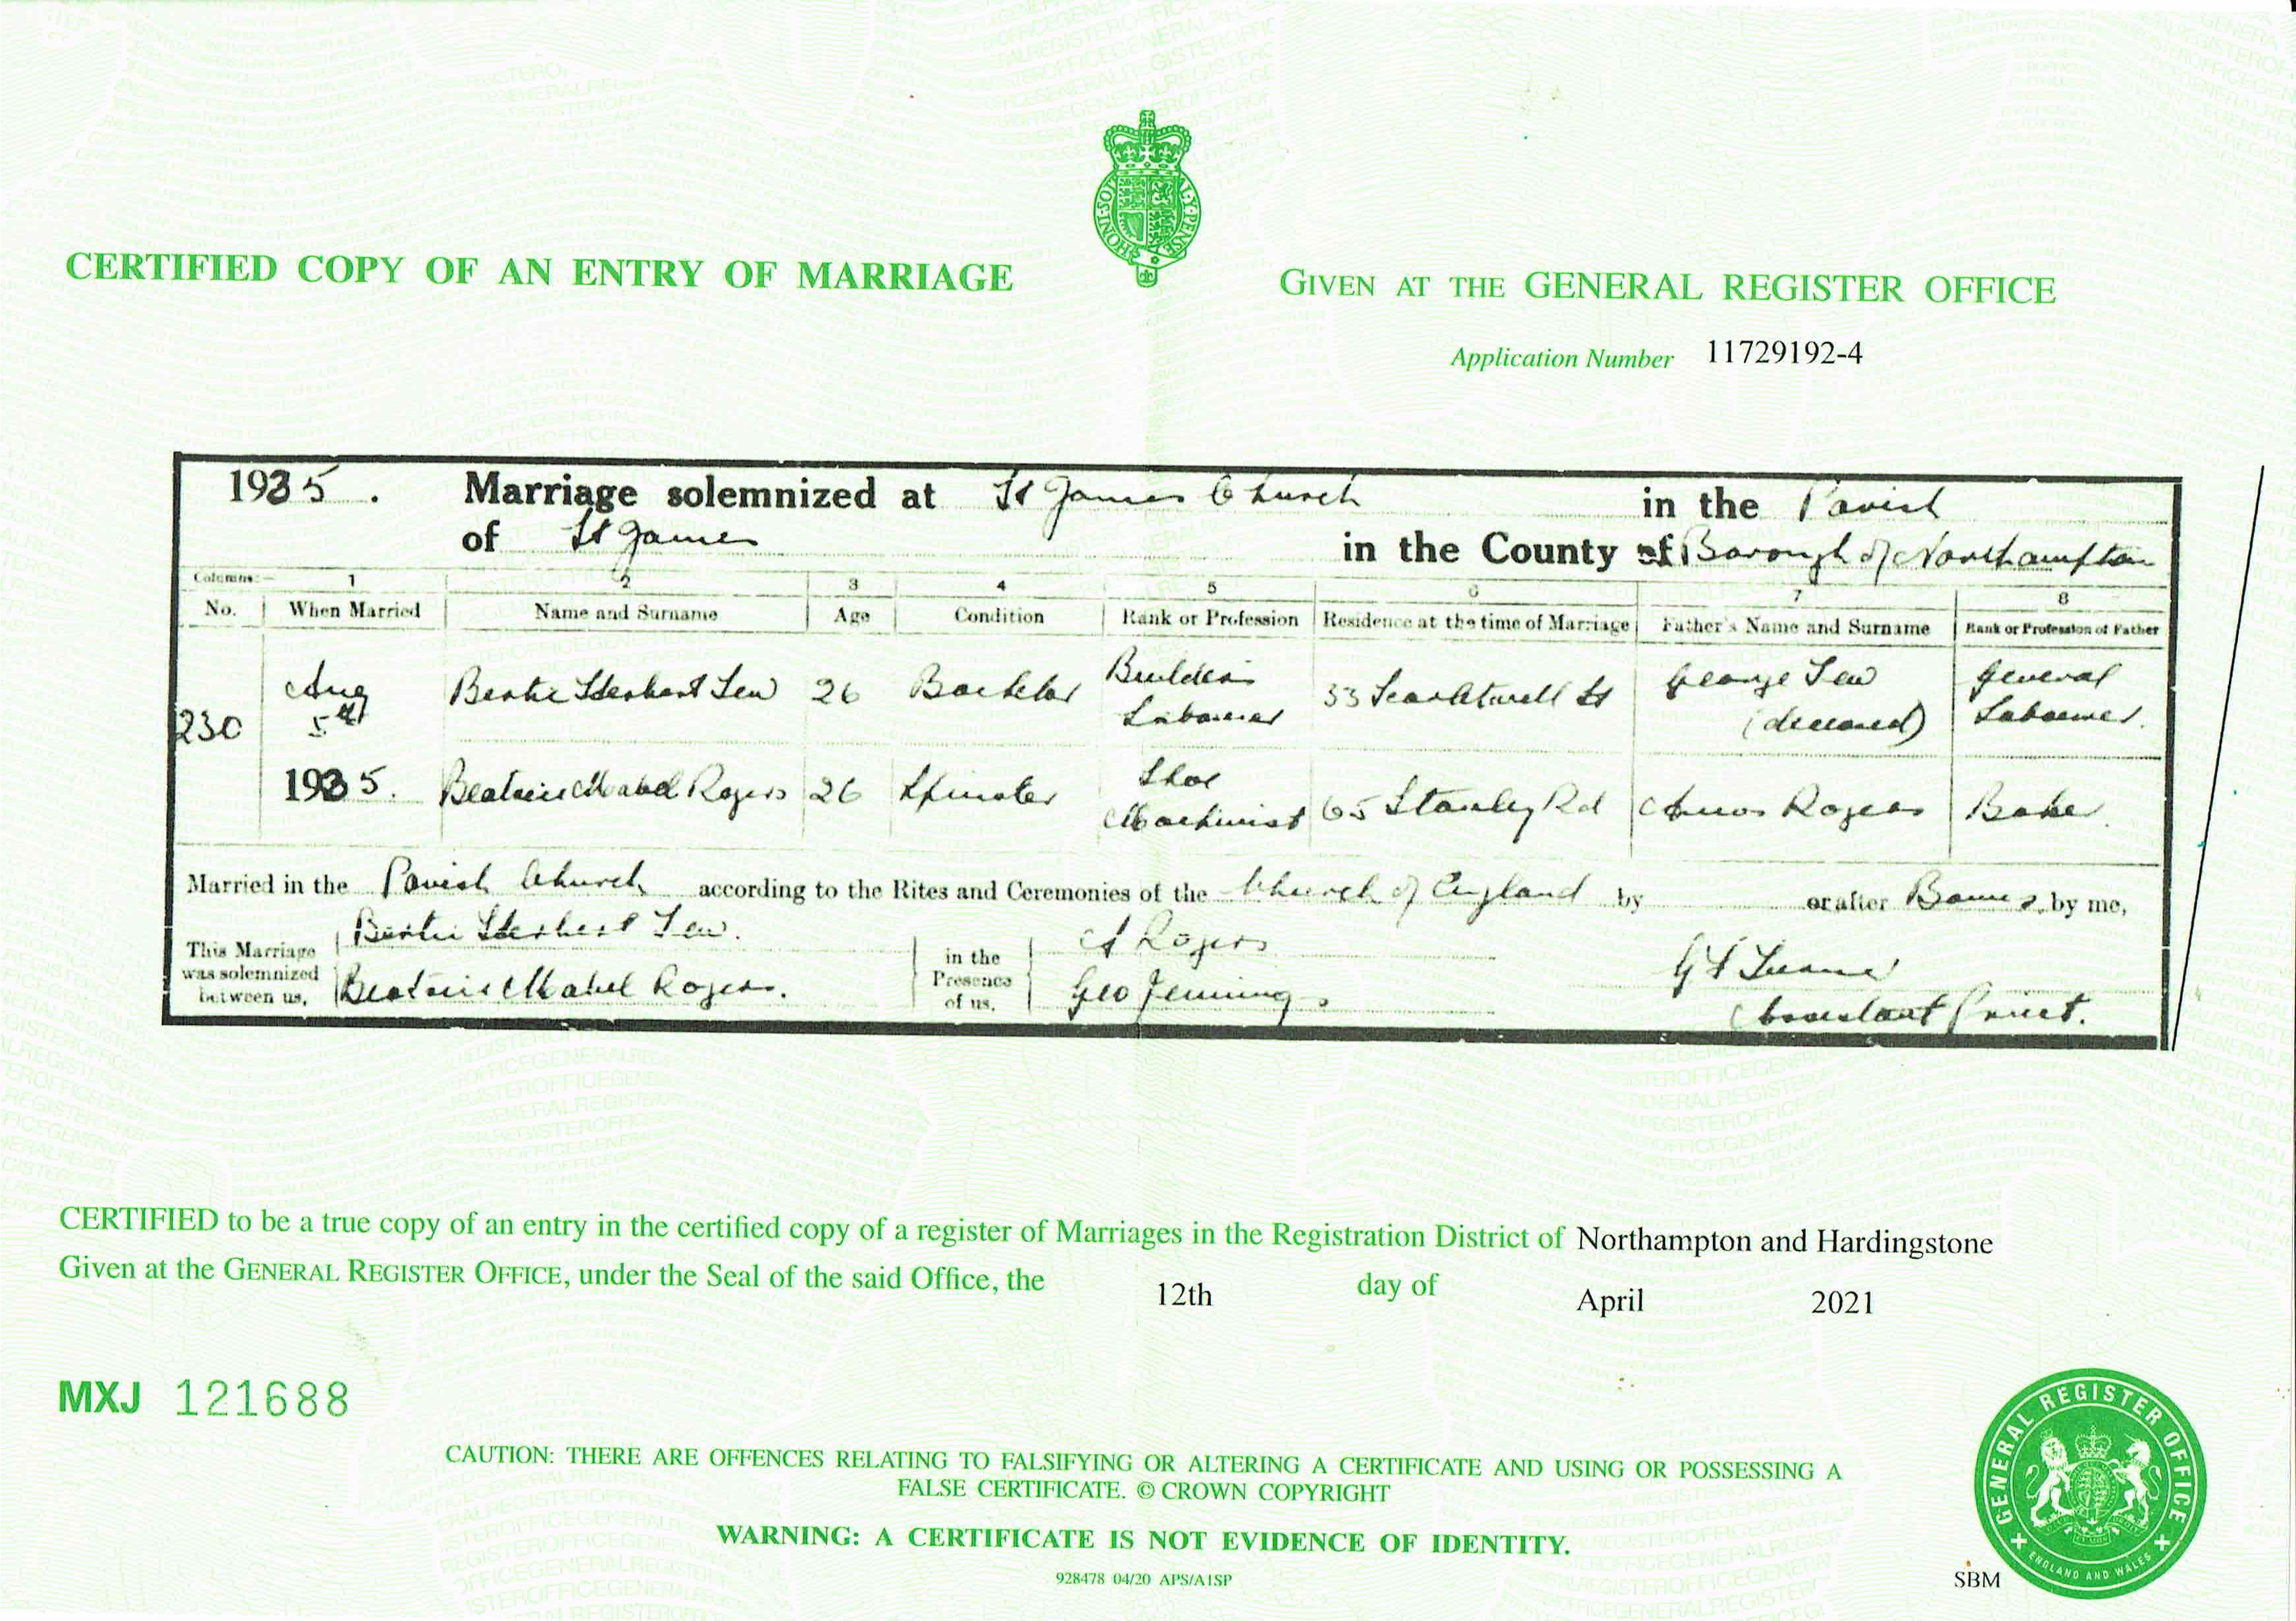 HONI·SOIT Y·PENSE
CERTIFIED COPY OF AN ENTRY OF MARRIAGE
GIVEN AT THE GENERAL REGISTER OFFICE
Application Number 11729192-4
1935. Marriage solemnized at St James Church in the Parish
of St James in the County of Borough of Northampton
Columns:— 1 2 3 4 5 6 7 8
No. When Married Name and Surname Age Condition Rank or Profession Residence at the time of Marriage Father's Name and Surname Rank or Profession of Father
230 Aug 5th 1935. Bertie Herbert Tew 26 Bachelor Builders Labourer 33 St George Tew (deceased) General Labourer.
Beatrice Mabel Rogers 26 Spinster Shoe Machinist 65 Stanley Rd Amos Rogers Baker.
Married in the Parish Church according to the Rites and Ceremonies of the Church of England by or after Banns by me,
This Marriage was solemnized between us, Bertie Herbert Tew. Beatrice Mabel Rogers. in the Presence of us, A Rogers Geo Jennings
Assistant Priest.
CERTIFIED to be a true copy of an entry in the certified copy of a register of Marriages in the Registration District of Northampton and Hardingstone
Given at the GENERAL REGISTER OFFICE, under the Seal of the said Office, the 12th day of April 2021
MXJ 121688
CAUTION: THERE ARE OFFENCES RELATING TO FALSIFYING OR ALTERING A CERTIFICATE AND USING OR POSSESSING A
FALSE CERTIFICATE. © CROWN COPYRIGHT
WARNING: A CERTIFICATE IS NOT EVIDENCE OF IDENTITY.
928478 04/20 APS/A1SP
SBM
GENERAL REGISTER OFFICE
ENGLAND AND WALES